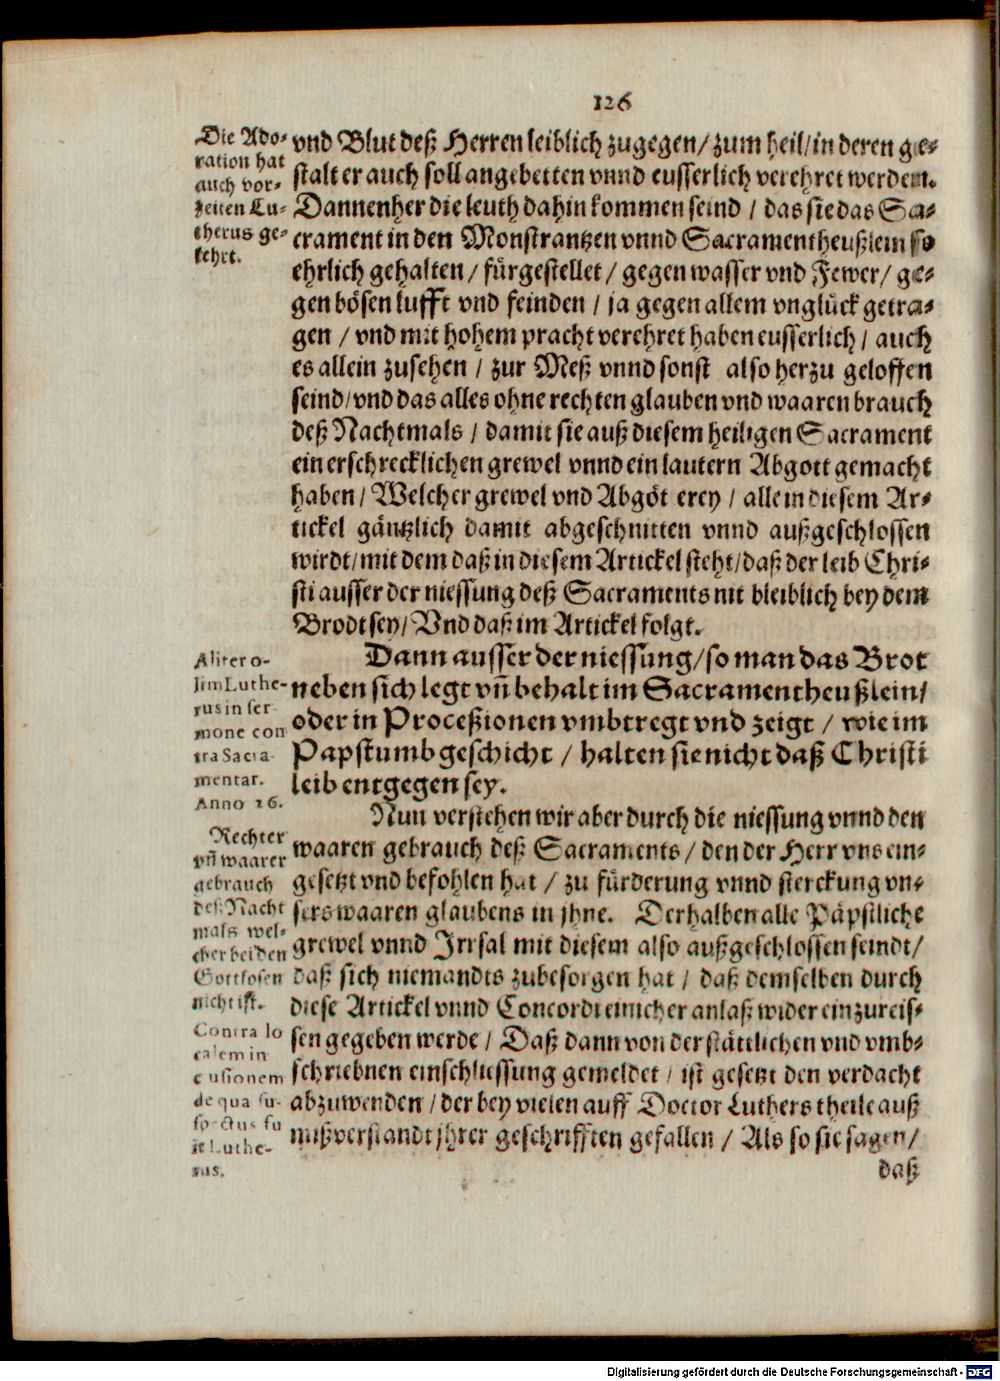 126
Die Ado-
ration hat
auch vor-
zeiten Lu-
therus ge-
lehrt.
vnd Blut deß Herren leiblich zugegen/ zum heil/ in deren ge-
stalt er auch soll angebetten vnnd eusserlich verehret werden.
Dannenher die leuth dahin kommen seind / das sie das Sa-
crament in den Monstrantzen vnnd Sacramentheußlein so
ehrlich gehalten / fürgestellet / gegen wasser vnd Fewer/ ge-
gen bösen lufft vnd feinden / ja gegen allem vnglück getra-
gen / vnd mit hohem pracht verehret haben eusserlich / auch
es allein zusehen / zur Meß vnnd sonst also herzu geloffen
seind/ vnd das alles ohne rechten glauben vnd waaren brauch
deß Nachtmals / damit sie auß diesem heiligen Sacrament
ein erschrecklichen grewel vnnd ein lautern Abgott gemacht
haben / Welcher grewel vnd Abgöt erey / allein diesem Ar-
tickel gäntzlich damit abgeschnitten vnnd außgeschlossen
wirdt/ mit dem daß in diesem Artickel steht/ daß der leib Chri-
sti ausser der niessung deß Sacraments nit bleiblich bey dem
Brodt sey/ Vnd daß im Artickel folgt.
Aliter o-
lim Luthe-
rus in ser
mone con
tra Sacra-
mentar.
Anno 26.
Dann ausser der niessung/ so man das Brot
neben sich legt vñ behalt im Sacramentheußlein/
oder in Proceßionen vmbtregt vnd zeigt / wie im
Papstumb geschicht / halten sie nicht daß Christi
leib entgegen sey.
Rechter
vñ waarer
gebrauch
deß Nacht
mals wel-
cher bei den
Gottlosen
nicht ist.
Nun verstehen wir aber durch die niessung vnnd den
waaren gebrauch deß Sacraments / den der Herr vns ein-
gesetzt vnd befohlen hat / zu fürderung vnnd sterckung vn-
sers waaren glaubens in jhne. Derhalben alle Päpstliche
grewel vnnd Irrsal mit diesem also außgeschlossen seindt/
daß sich niemandts zubesorgen hat / daß demselben durch
diese Artickel vnnd Concordi einicher anlaß wider einzureis-
sen gegeben werde / Daß dann von der stättlichen vnd vmb-
schriebnen einschliessung gemeldet / ist gesetzt den verdacht
abzuwenden / der bey vielen auff Doctor Luthers theile auß
mißverstandt jhrer geschrifften gefallen / Als so sie sagen /
Contra lo
calem in
clusionem
de qua su-
spectus fu
it Luthe-
rus.
daß
Digitalisierung gefördert durch die Deutsche Forschungsgemeinschaft - DFG